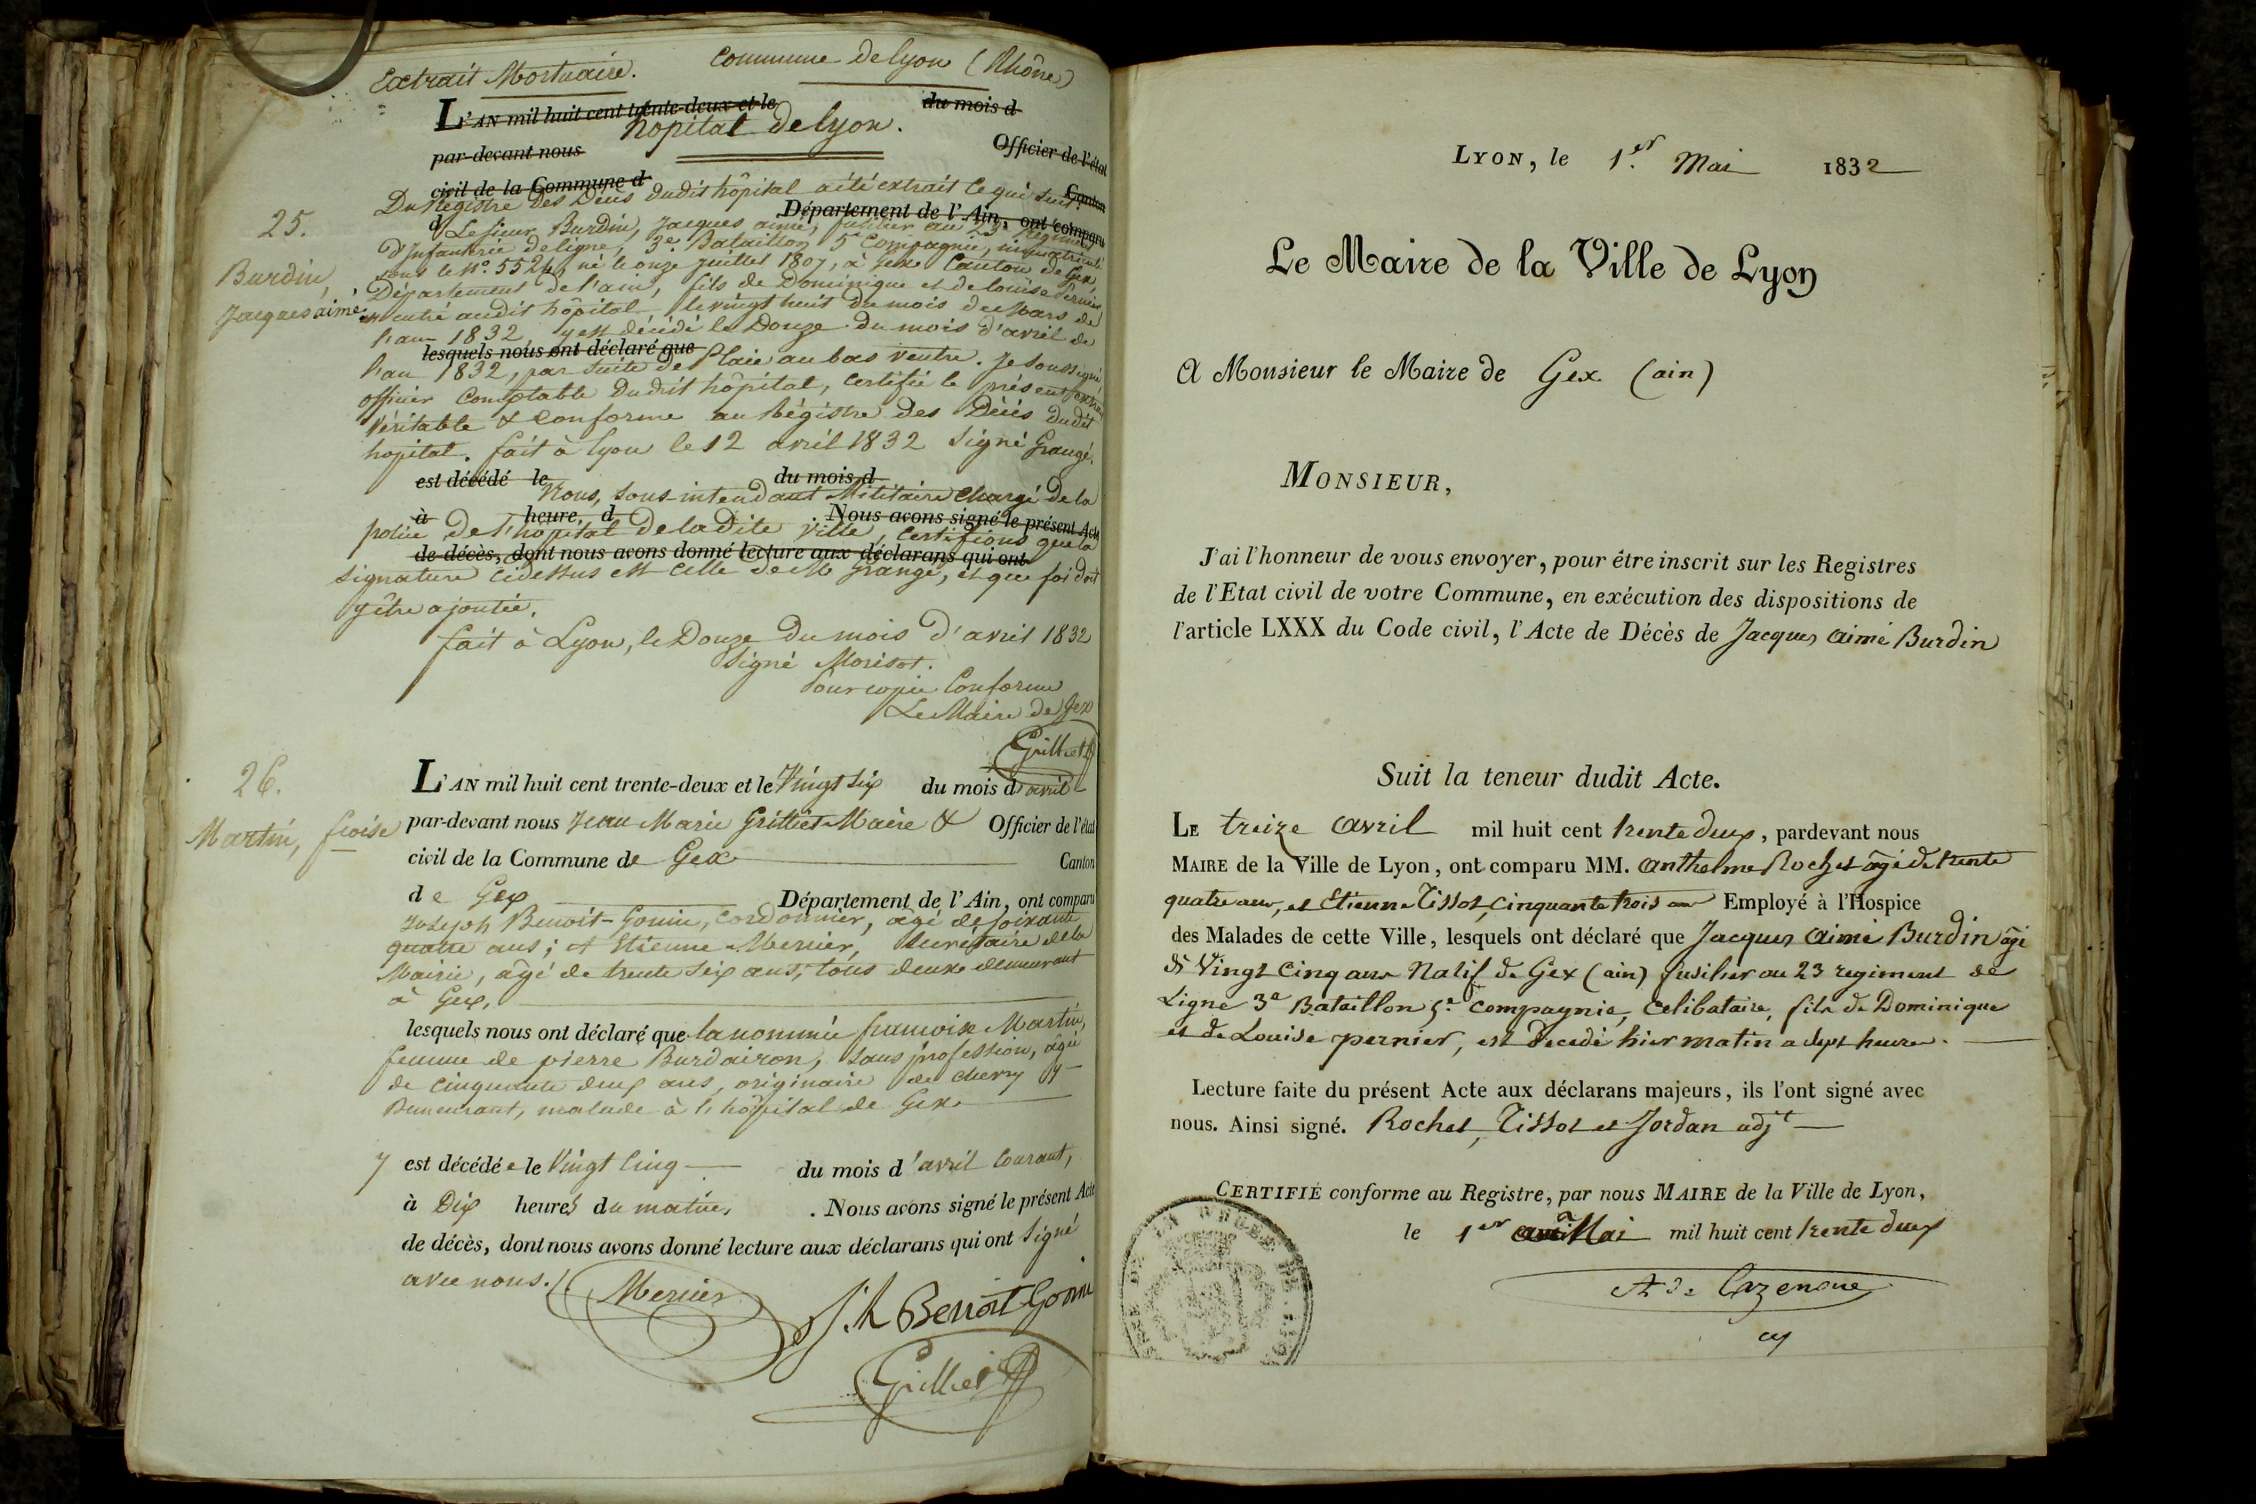 Extrait Mortuaire. Commune de Lyon (Rhône)
L'AN mil huit cent trente-deux et le du mois d
hopital de Lyon.
par-devant nous Officier de l'état
civil de la Commune d Canton
Du Registre des Décès dudit hôpital a été extrait ce qui suit.
d Département de l'Ain, ont comparu
25.
Le Sieur Burdin, Jacques aimé, fusilier au 23e Régiment
d'Infanterie de ligne, 3e Bataillon 5e Compagnie, immatriculé
Burdin,
Jacques aimé
sous le No. 5524, né le onze juillet 1807, à Gex Canton de Gex,
Département de l'ain, fils de Dominique et de Louise Pernier,
entré audit hôpital le vingt huit du mois de Mars de
l'an 1832 y est décédé le Douze du mois d'avril de
lesquels nous ont déclaré que
l'an 1832, par suite de Plaie au bas ventre. Je soussigné,
officier Comptable Dudit hôpital, certifié le présent extrait
Véritable & Conforme au Régistre des Décès Dudit
hopital. fait à Lyon le 12 avril 1832 Signé Grangé.
est décédé le du mois d
Nous, sous intendant Militaire chargé de la
à heure d Nous avons signé le présent Acte
police de l'hopital de ladite ville, Certifions que la
de décès, dont nous avons donné lecture aux déclarans qui ont
signature cidessus est celle de Mr Grangé, et que foi doit
y être ajoutée.
fait à Lyon, le Douze du mois d'avril 1832
Signé Morisot.
Pour copie Conforme
Le Maire de Gex
Grilliet
26.
L'AN mil huit cent trente-deux et le Vingt six du mois d'avril
Martin, froise
par-devant nous Jean Marie Grilliet Maire & Officier de l'état
civil de la Commune de Gex Canton
de Gex Département de l'Ain, ont comparu
Joseph Benoit-Gonin, Cordonnier, âgé de soixante
quatre ans; et Etienne Mercier, Secrétaire de la
Mairie, âgé de trente six ans, tous deux demeurant
à Gex,
lesquels nous ont déclaré que la nommée francoise Martin,
femme de pierre Burdairon, sans profession, âgée
de cinquante deux ans, originaire de chevry y
Demeurant, malade à l'hôpital de Gex
y est décédée le Vingt Cinq du mois d'avril Courant,
à Dix heures du matin, . Nous avons signé le présent Acte
de décès, dont nous avons donné lecture aux déclarans qui ont Signé
avec nous.
Mercier
J.h Benoit Gonin
Grilliet
LYON, le 1.er Mai 1832
Le Maire de la Ville de Lyon
A Monsieur le Maire de Gex (ain)
MONSIEUR,
J'ai l'honneur de vous envoyer, pour être inscrit sur les Registres
de l'Etat civil de votre Commune, en exécution des dispositions de
l'article LXXX du Code civil, l'Acte de Décès de Jacques aimé Burdin
Suit la teneur dudit Acte.
LE treize avril mil huit cent trente deux, pardevant nous
MAIRE de la Ville de Lyon, ont comparu MM. anthelme Rochet âgé de trente
quatre ans, et Etienne Tissot, cinquante trois ans Employé à l'Hospice
des Malades de cette Ville, lesquels ont déclaré que Jacques Aimé Burdin âgé
de Vingt Cinq ans Natif de Gex (ain) fusilier au 23 regiment de
Ligne 3e Bataillon 5e compagnie, Celibataire, fils de Dominique
et de Louise pernier, est Decedé hier matin a sept heures.
Lecture faite du présent Acte aux déclarans majeurs, ils l'ont signé avec
nous. Ainsi signé. Rochet, Tissot et Jordan adjt
CERTIFIÉ conforme au Registre, par nous MAIRE de la Ville de Lyon,
le 1er Mai mil huit cent trente deux
A de Cazenove